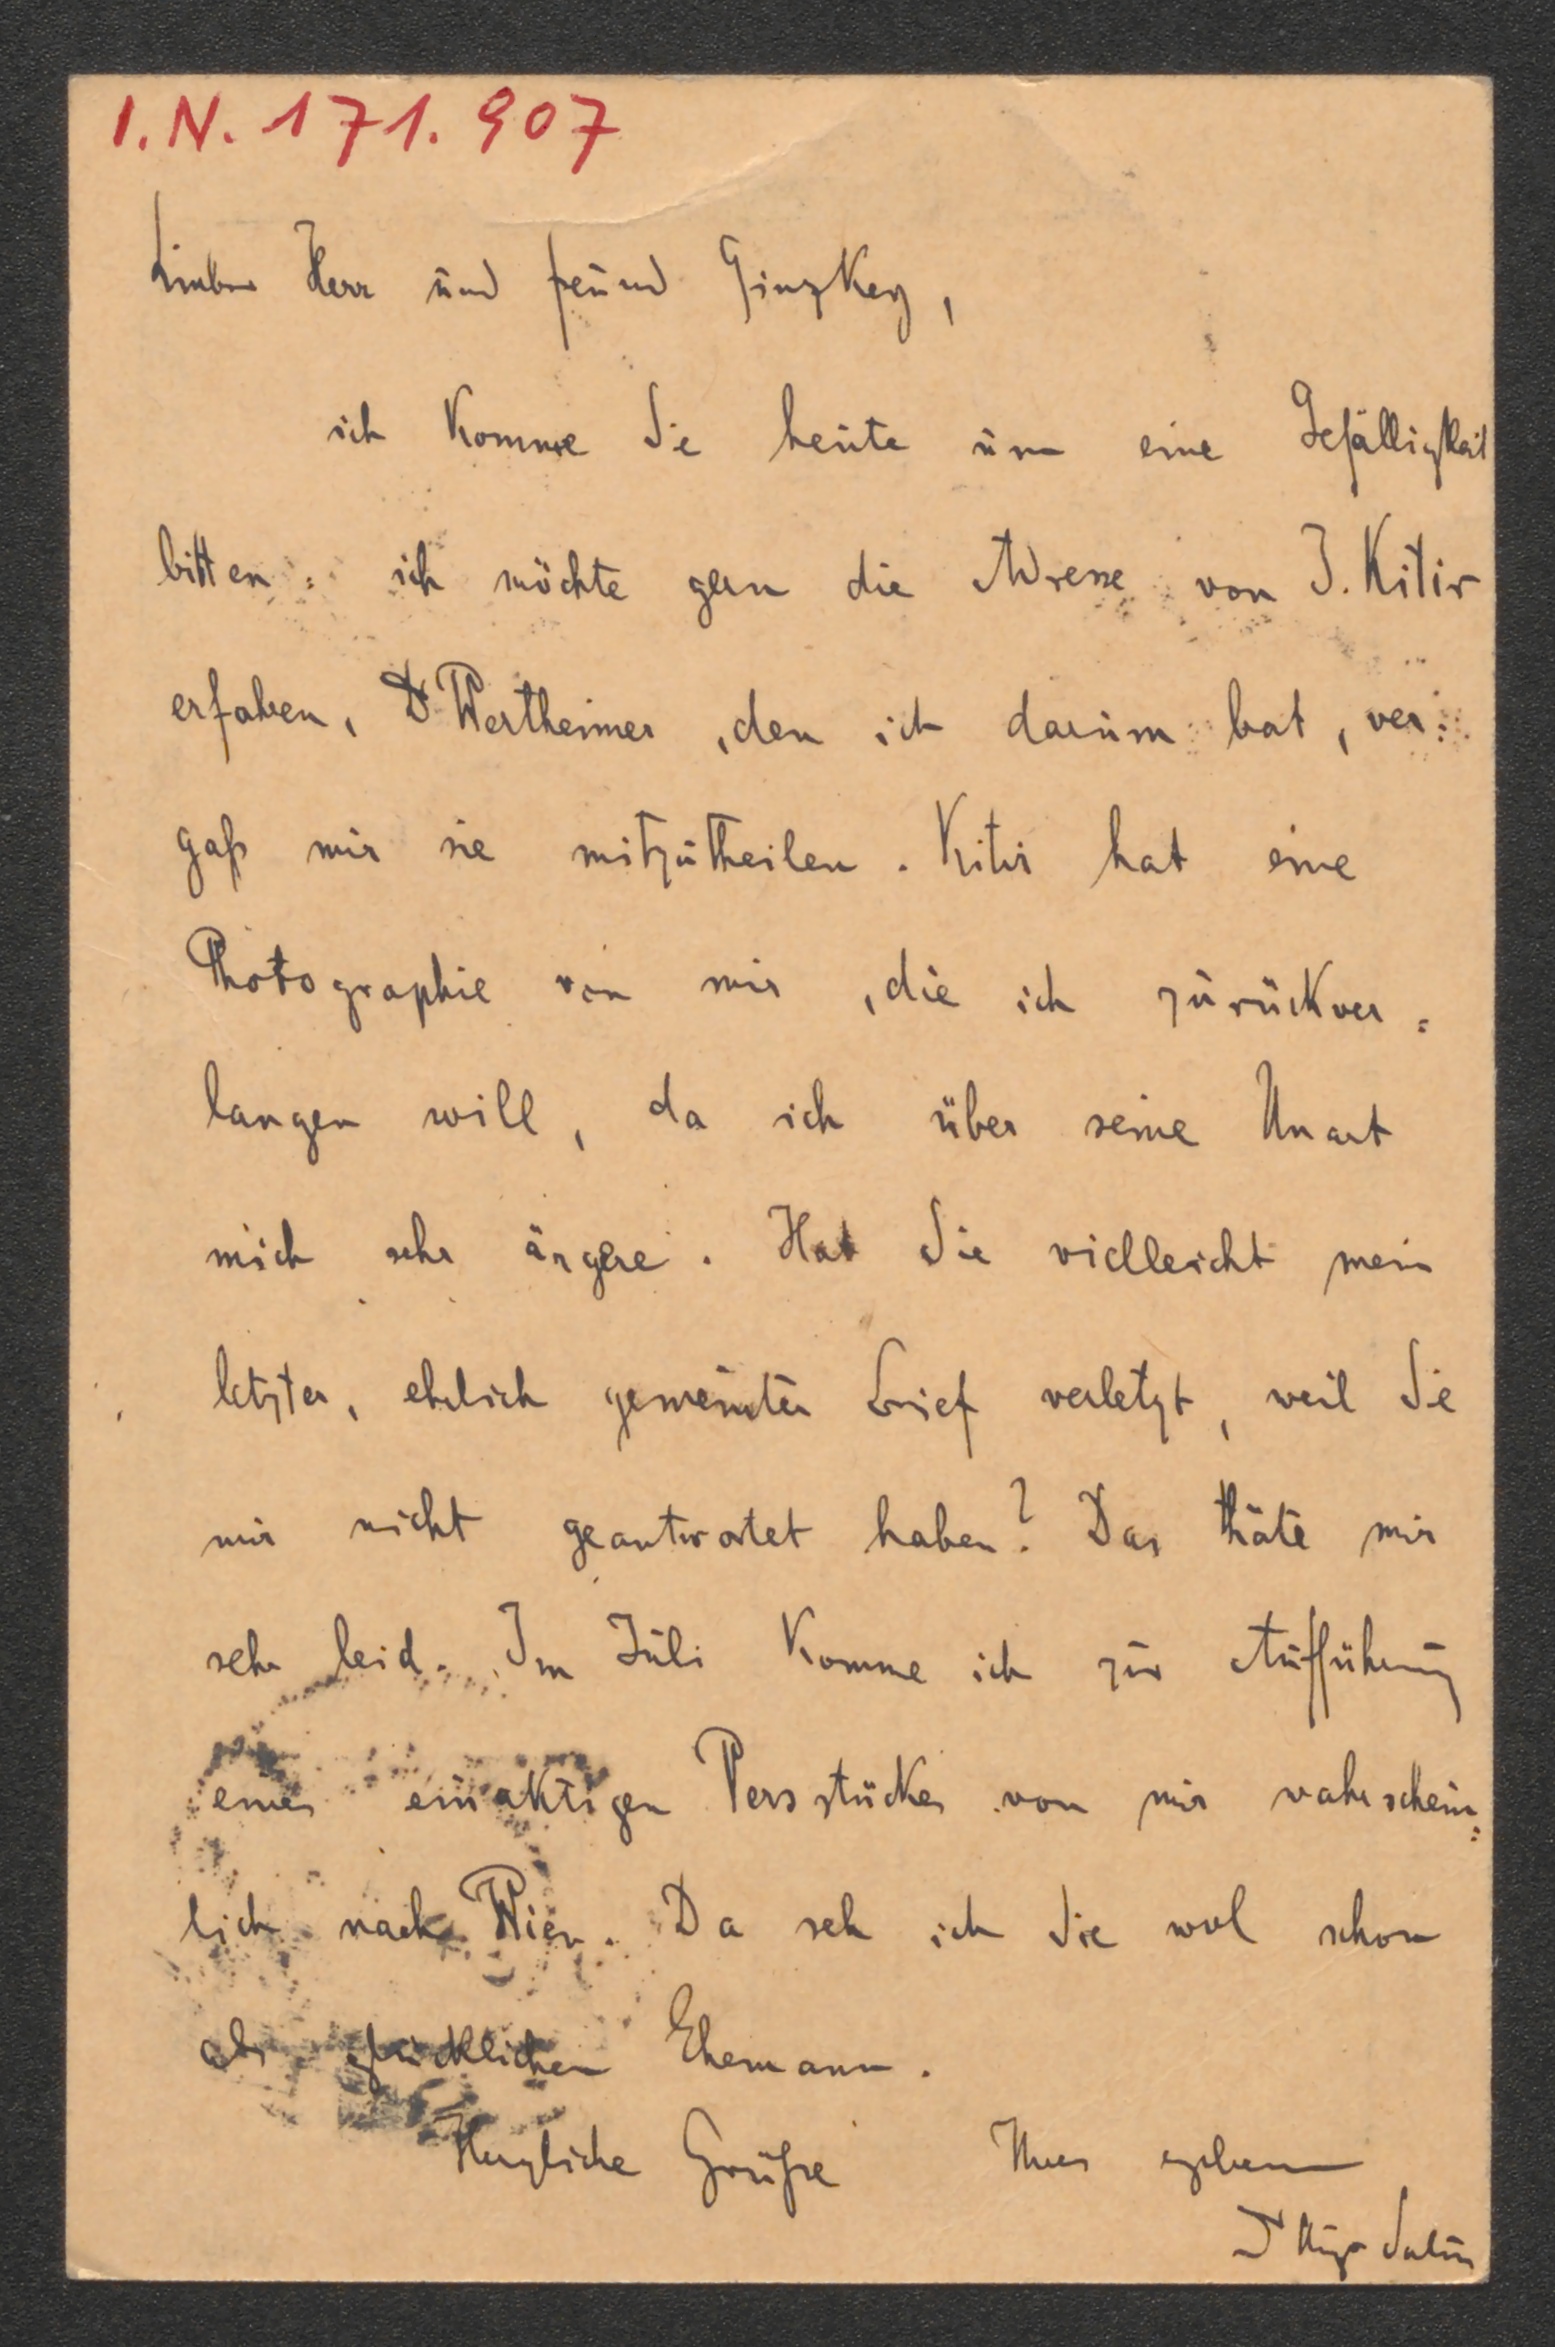 I.N. 171.907
Lieber Herr und Freund Ginzkey,
ich komme Sie heute um eine Gefälligkeit
bitten: ich möchte gern die Adresse von J. Kitir
erfahren, Dr Wertheimer, den ich darum bat, ver:
gaß mir sie mitzutheilen. Kitir hat eine
Photographie von mir, die ich zurückver:
langen will, da ich über seine Unart
mich sehr ärgere. Hat Sie vielleicht mein
letzter, ehrlich gemeinter Brief verletzt, weil Sie
mir nicht geantwortet haben? Das thäte mir
sehr leid. Im Juli komme ich zur Aufführung
eines einaktigen Versstückes von mir wahrschein:
lich nach Wien. Da seh ich Sie wol schon
als glücklichen Ehemann.
Herzliche Grüße Ihres ergebenen
Dr Hugo Salus